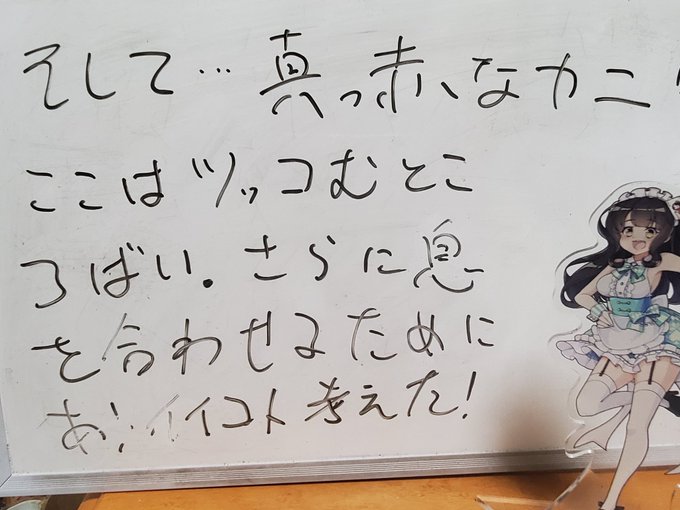 そして…真っ赤なカニ!
ここはツッコむとこ
ろばい。さらに息
を合わせるために
あ!イイコト考えた!